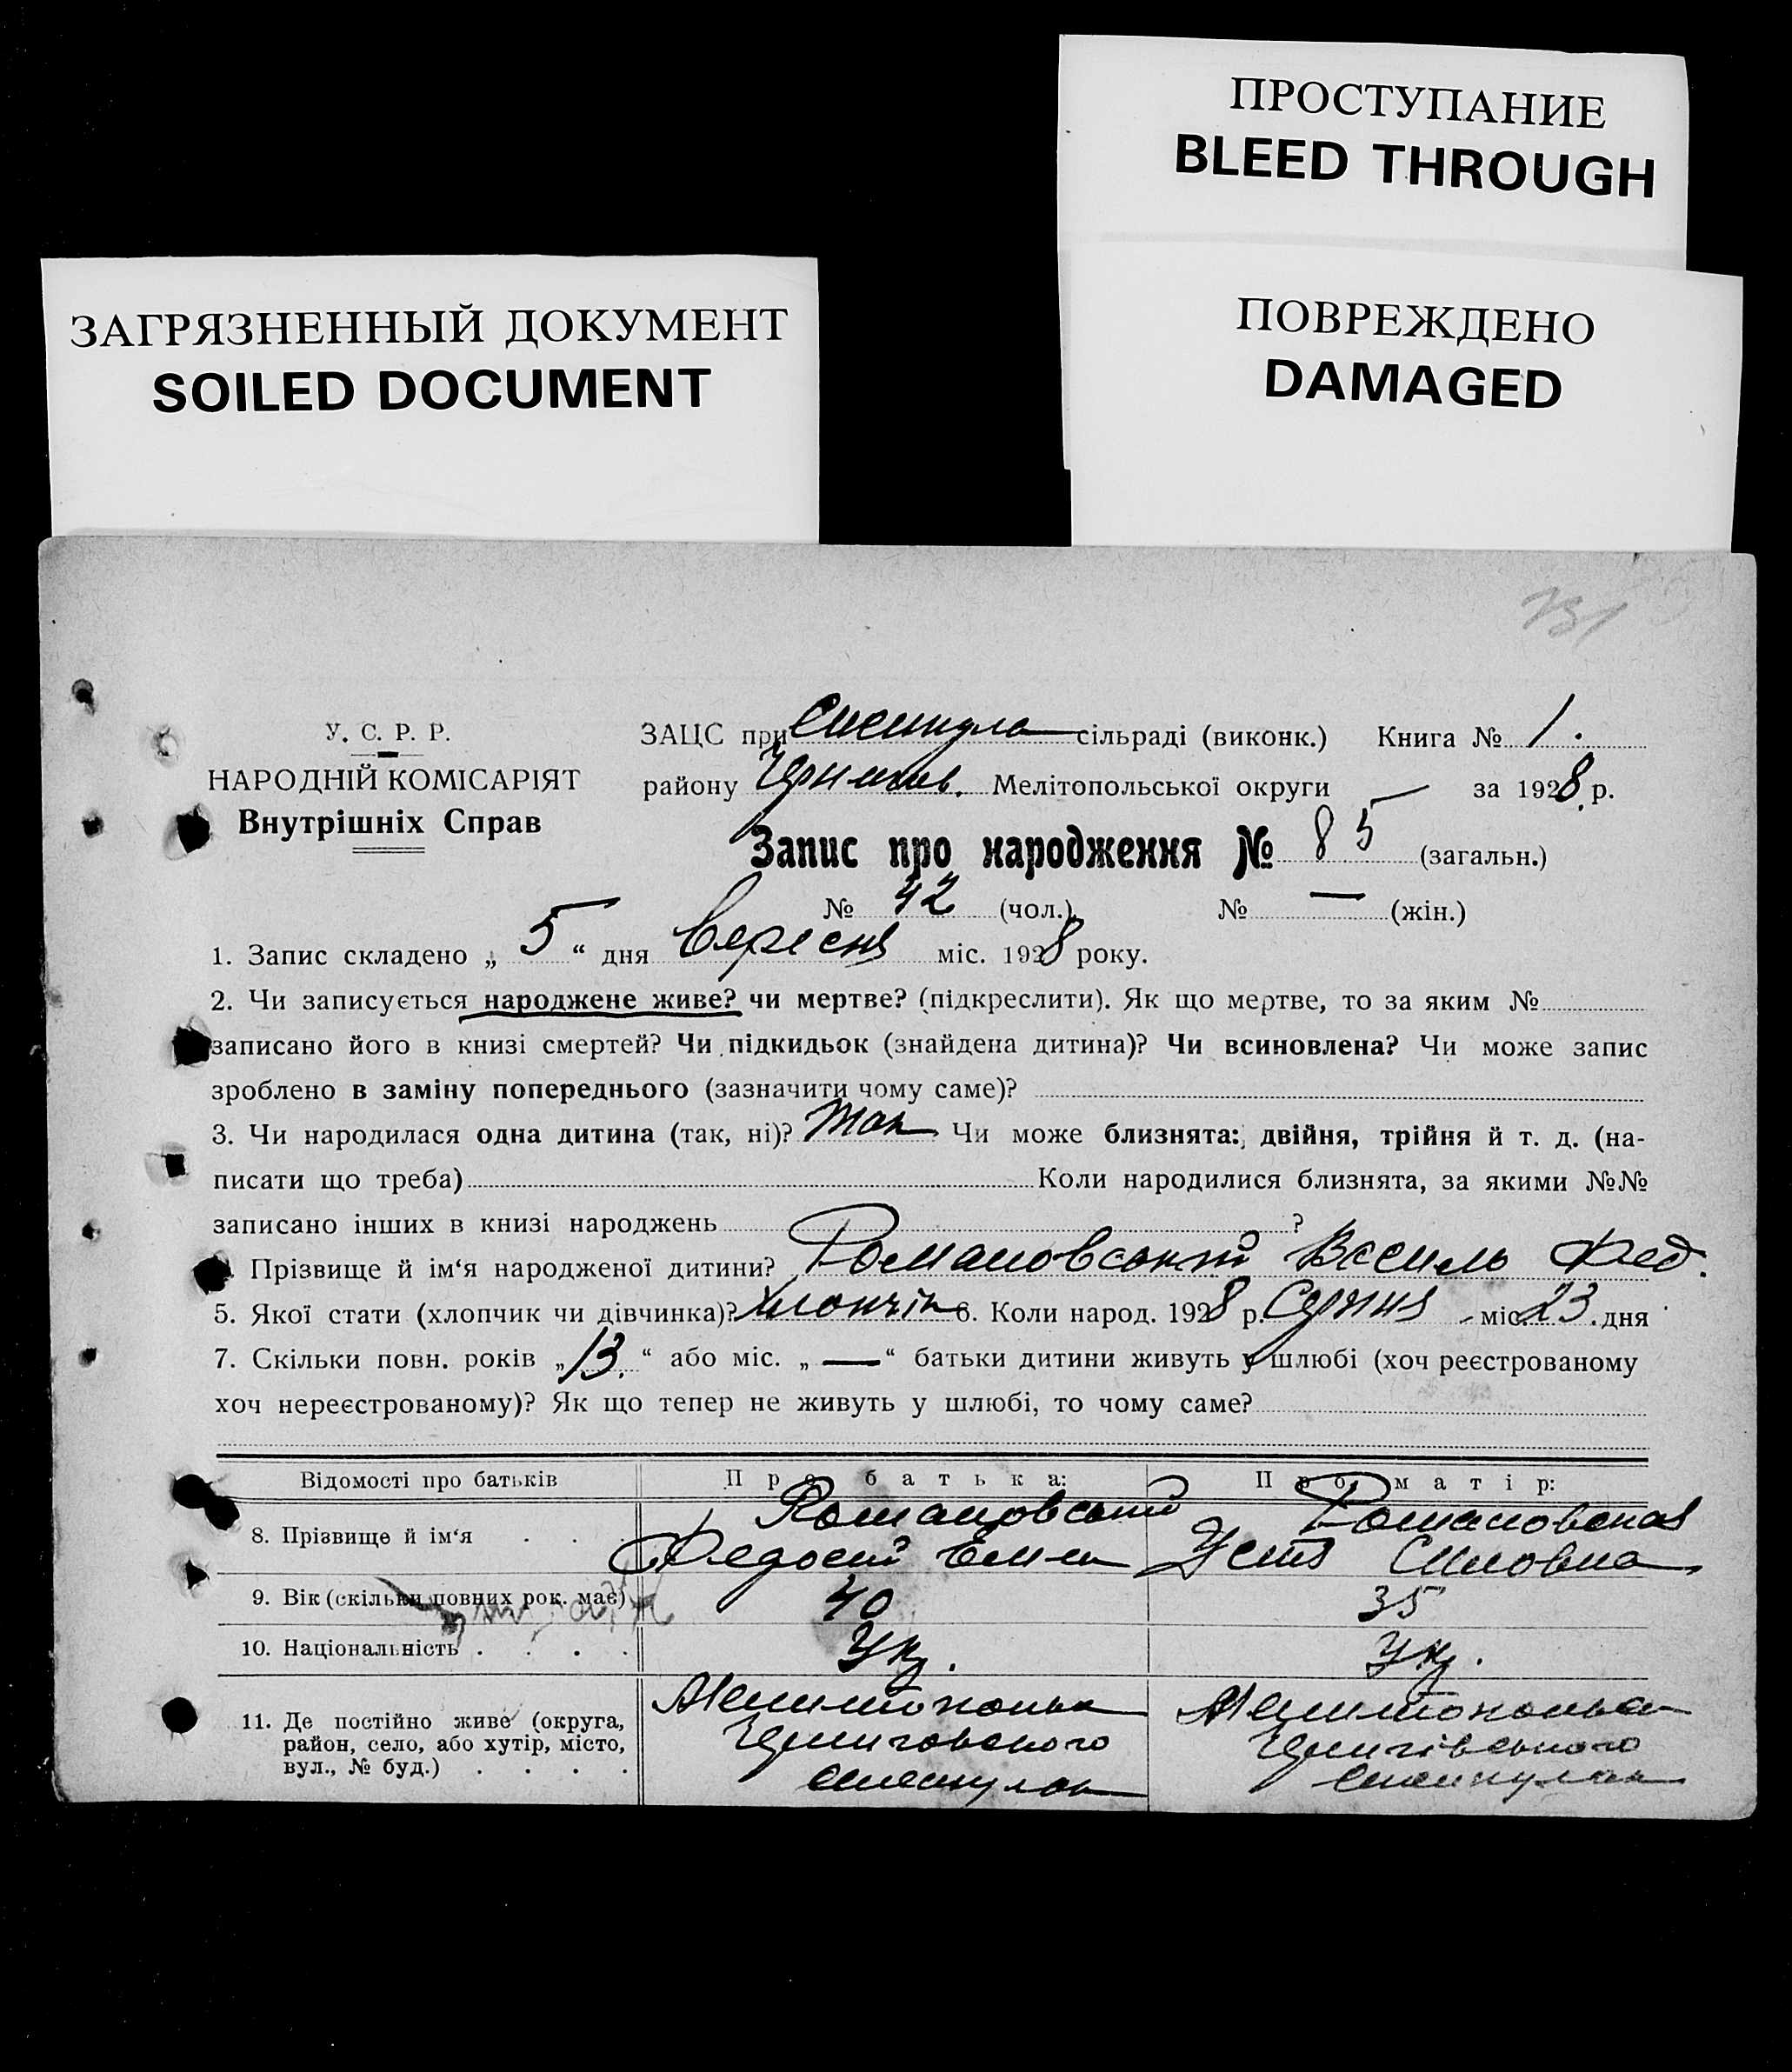 ПРОСТУПАНИЕ
BLEED THROUGH
ЗАГРЯЗНЕННЫЙ ДОКУМЕНТ
SOILED DOCUMENT
ПОВРЕЖДЕНО
DAMAGED
131
У. С. Р. Р.
НАРОДНІЙ КОМІСАРІЯТ
Внутрішніх Справ
ЗАЦС при сільраді (виконк.) Книга № 1.
району Мелітопольської округи — за 1928 р.
Запис про народження № 85 (загальн.)
№ 42 (чол.) № — (жін.)
1. Запис складено „ 5 “ дня Вересня міс. 1928 року.
2. Чи записується народжене живе? чи мертве? (підкреслити). Як що мертве, то за яким №
записано його в книзі смертей? Чи підкидьок (знайдена дитина)? Чи всиновлена? Чи може запис
зроблено в заміну попереднього (зазначити чому саме)?
3. Чи народилася одна дитина (так, ні)? Так Чи може близнята: двійня, трійня й т. д. (на-
писати що треба) Коли народилися близнята, за якими №№
записано інших в книзі народжень ?
Прізвище й ім‘я народженої дитини? Романовський Василь Фед.
5. Якої стати (хлопчик чи дівчинка)? хлопчік 6. Коли народ. 1928 р. Серпня міс. 23. дня
7. Скільки повн. років „ 13. “ або міс. „ — “ батьки дитини живуть у шлюбі (хоч реєстрованому
хоч нереєстрованому)? Як що тепер не живуть у шлюбі, то чому саме?
Відомості про батьків Про батька: Про матір:
8. Прізвище й ім‘я . . . Романовський Романовская
Федосій Устя
9. Вік (скільки повних рок. має) 40 35
10. Національність . . . . Укр. Укр.
11. Де постійно живе (округа,
район, село, або хутір, місто,
вул., № буд.) . . . .